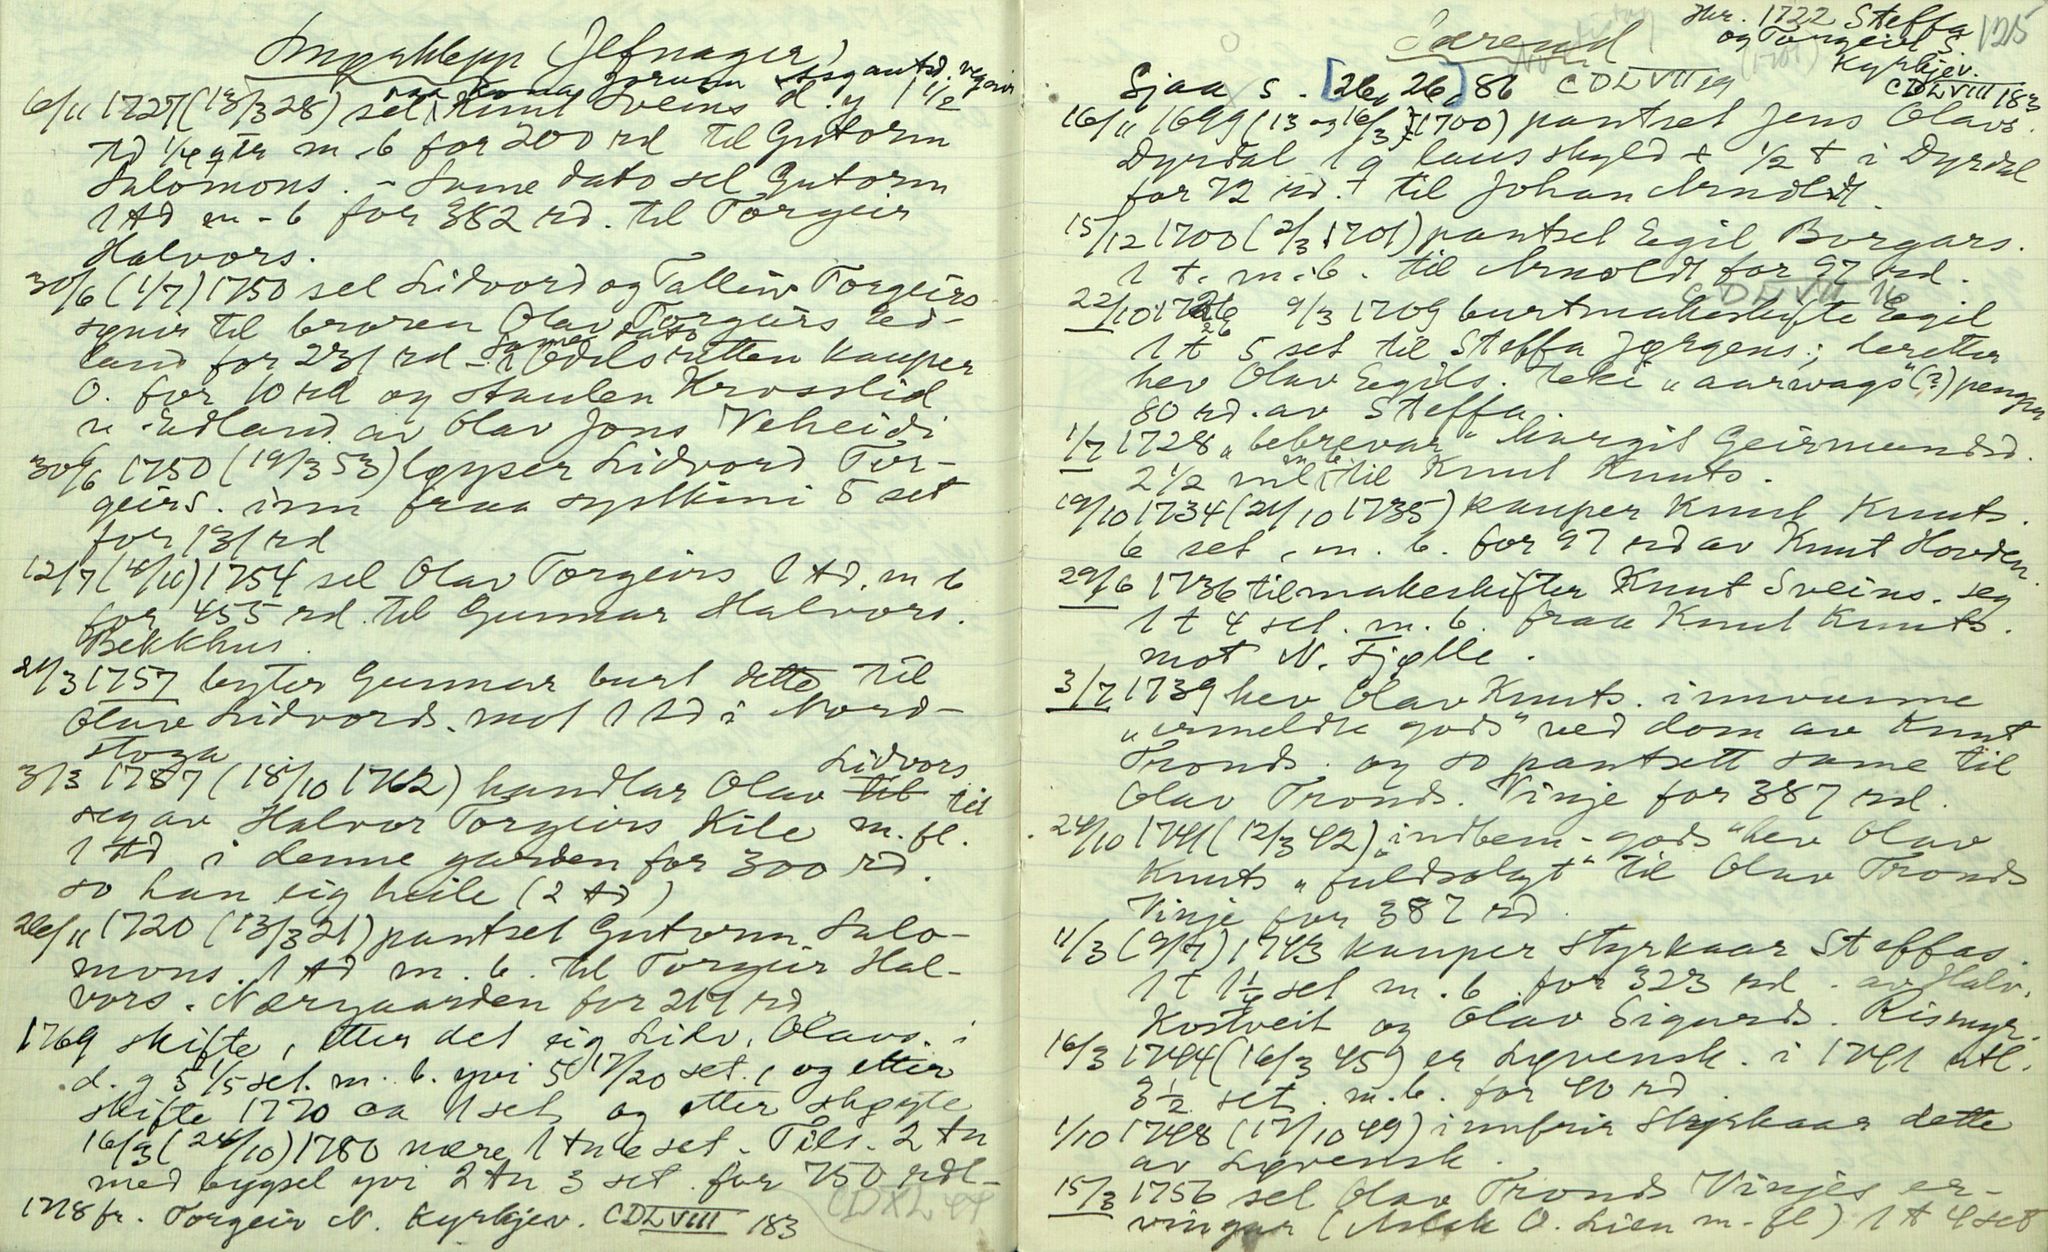 Smørklepp (Jefnager)
paa kona Jorunn Asgautsd. vegner
6/11 1727 (13/3 28) sel Knut Sveins d. y. 1 1/2
td 1/4 gtr m. b for 200 rd til Gutorm
Salomons. - Same dato sel Gutorm
1 td m - b for 382 rd. til Torgeir
Halvors.
30/6 (1/7) 1750 sel Lidvord og Talleiv Torgeirs
synir til broren Olav Torgeirs Ed-
land for 231 rd - same dato i Odelsretten kauper
O. for 10 rd og staulen Krosslid
u. Edland av Olav Jons Veheidi
30/6 1750 (19/3 53) løyser Lidvord Tor-
geirs. inn fraa syskini 5 set
for 131 rd
12/7 (18/10) 1754 sel Olav Torgeirs 1 td. m b
for 455 rd. til Gunnar Halvors.
Bekkhus.
21/3 1757 byter Gunnar burt dette til
Olav Lidvords. mot 1 td i Nord-
stoga
3/3 1787 (18/10 1762) handlar Olav Lidvors til
seg av Halvor Torgeirs Kile m. fl.
1 td i denne garden for 300 rd.
so han eig heile (2 td)
26/11 1720 (13/3 21) pantset Gutorm Salo-
mons. 1 td m. b. til Torgeir Hal-
vors. Nørgaarden for 217 rd.
1769 skifte, etter det eig Lidv. Olavs. i
d. g 5 1/5 set. m. b. yvi 5 17/20 set., og etter
skifte 1770 aa 1 set, og etter skøyte
16/9 (24/10) 1780 nære 1 tn 6 set. Tils. 2 tn
med bygsel yvi 2 tn 3 set. for 750 rdl-
1728 fr. Torgeir N. Kyrkjev. CDLVIII 183
CDXL 44
Jbr. 1722 Steffa
og Torgeir S.
Kyrkjev.
CDLVIII 183
125
Ørend
Sjaa s. [26, 26] 86 CDLVII 19
16/11 1699 (13 og 16/3 1700) pantset Jens Olavs.
Dyrdal 1 g laus skyld + 1/2 t i Dyrdal
for 72 rd. t til Johan Arnoldt.
15/12 1700 (2/3 1701) pantset Egil Borgars.
1 t. m. b. til Arnoldt for 97 rd.
CDLVIII 16
22/10 1726 9/3 1709 burtmakeskifte Egil
1 t 5 set til Steffa Jørgens.; deretter
hev Olav Egils. teki "aarwags" (?) pengar
80 rd. av Steffa.
1/7 1728 "bebrevar" Margit Geirmundsd.
2 1/2 ml m. b. til Knut Knuts.
19/10 1734 (21/10 1735) kauper Knut Knuts.
6 set, m. b. for 97 rd av Knut Hovden.
29/6 1736 tilmakeskifter Knut Sveins. seg
1 t 4 set. m. b. fraa Knut Knuts.
mot N. Fjølle.
3/7 1739 hev Olav Knuts. innvunne
"ermeldte gods" ved dom av Knut
Tronds. og so pantsett same til
Olav Tronds. Vinje for 387 rd.
24/10 1741 (12/3 42) "indbem - gods" hev Olav
Knuts "fuldsolgt" til Olav Tronds
Vinje for 387 rd.
11/3 (9/7) 1743 kauper Styrkaar Steffas.
1 t 1 1/4 set m. b. for 323 rd. av Halv.
Kostveit og Olav Sigurds. Rismyr.
16/3 1744 (16/3 45) er Lyvensk. i 1741 utl.
3 1/2 set. m. b. for 40 rd.
1/10 1748 (17/10 49) innfrir Styrkaar dette
av Lyvensk.
15/3 1756 sel Olav Tronds Vinjes er-
vingar (Aslak O. Lien m - fl) 1 t 4 set